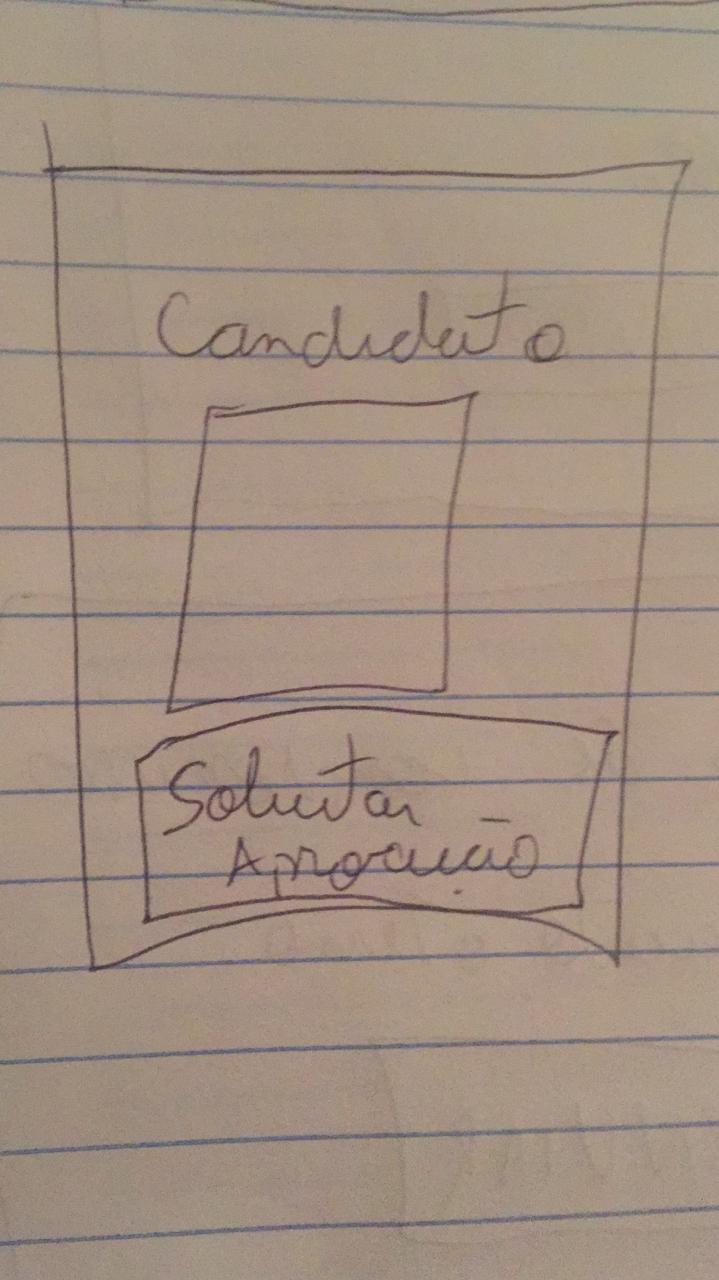 Candidato
Solicitar
Aprovação